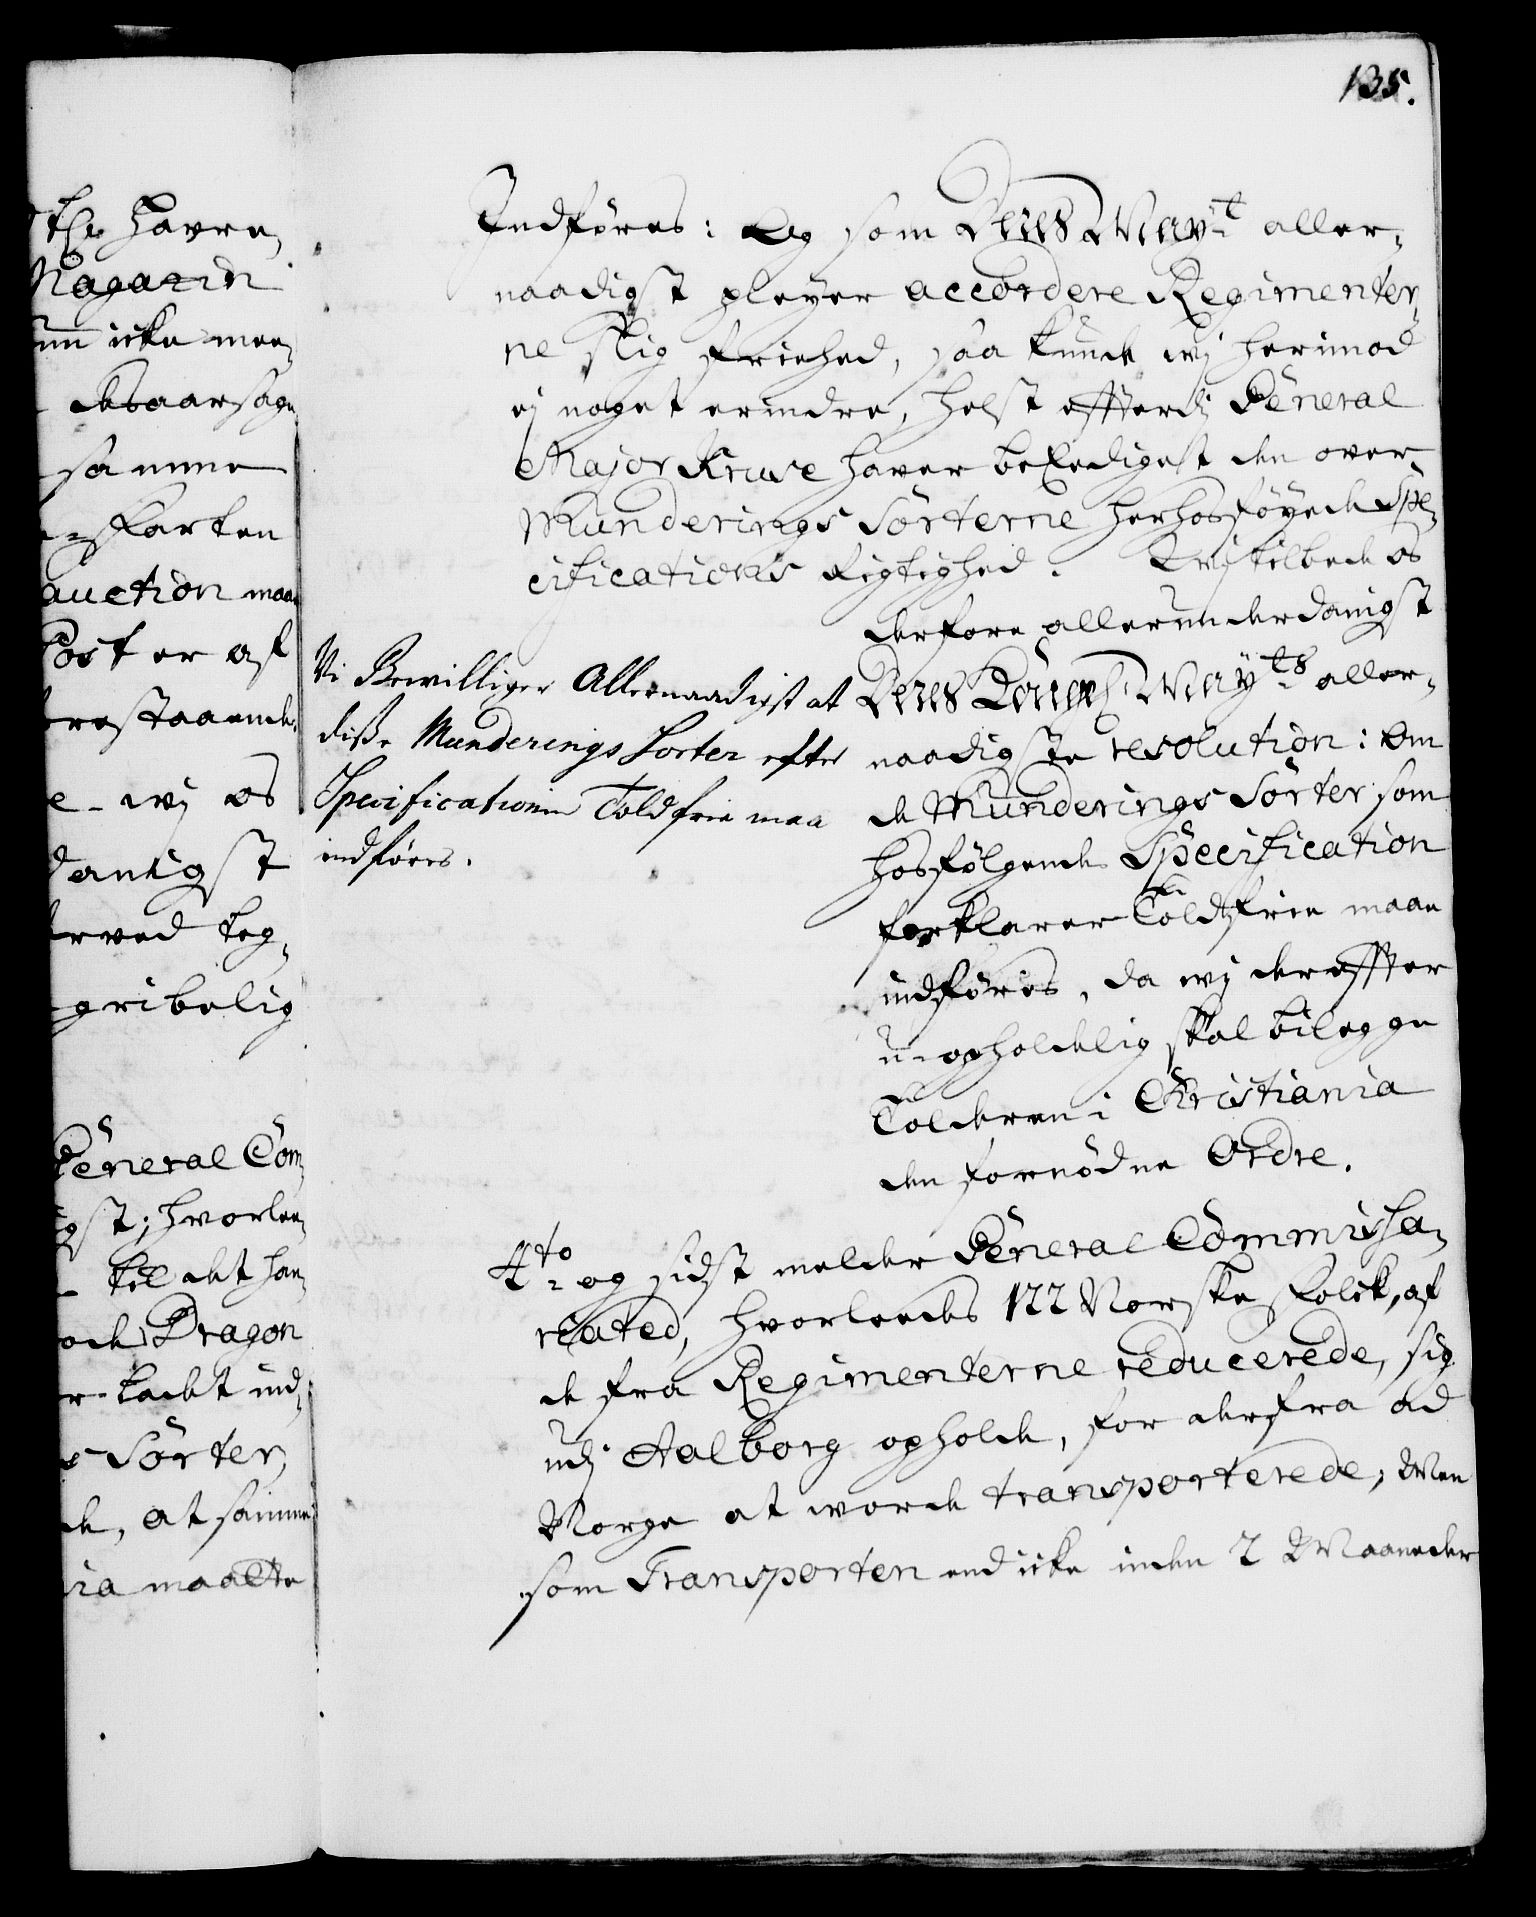 135.
tlr. Havre,
Magazin
icke mee,
desaarsage
samme
skarten
auction maa
Post er af
restaaende
e wj os
danigst
rved beg,
gribelig
General Com,
gst; hvorlee,
til det han,
ode Dragon
ladt ind,
Sorter,
de, at samme
ia maatte
Indføres: Og som Deris May.t aller,
naadigst pleyer accordere Regimenter,
ne slig friehed, saa kunde wj herimod
ej noget erindre, helst effterdj General
Major Kruse haver beEediget den over
Munderings Sorterne herhosføyede Spe,
cifications Rigtighed. Wj udbede os
derfore allerunderdanigst
Deris Kongel. May.ts aller,
naadigste resolution: Om
de Munderings Sorter som
hosfølgende Specification
forklarer Toldfrie maae
indføris, da wj dereffter
u-opholdelig skal bilegge
Tolderen i Christiania
den fornødne Ordre.
Vi Bevilliger Allernaadigst at
disse Munderings Sorter efter
Specificationen Toldfrie maa
indføres.
4.to og sidst melder General Commissa,
riated, hvorleedes 122 Norske Folck, af
de fra Regimenterne reducerede, sig
udj Aalborg opholde, for derfra ad
Norge at worde transporterede; Men
som Transporten end icke inden 2 Maaneder